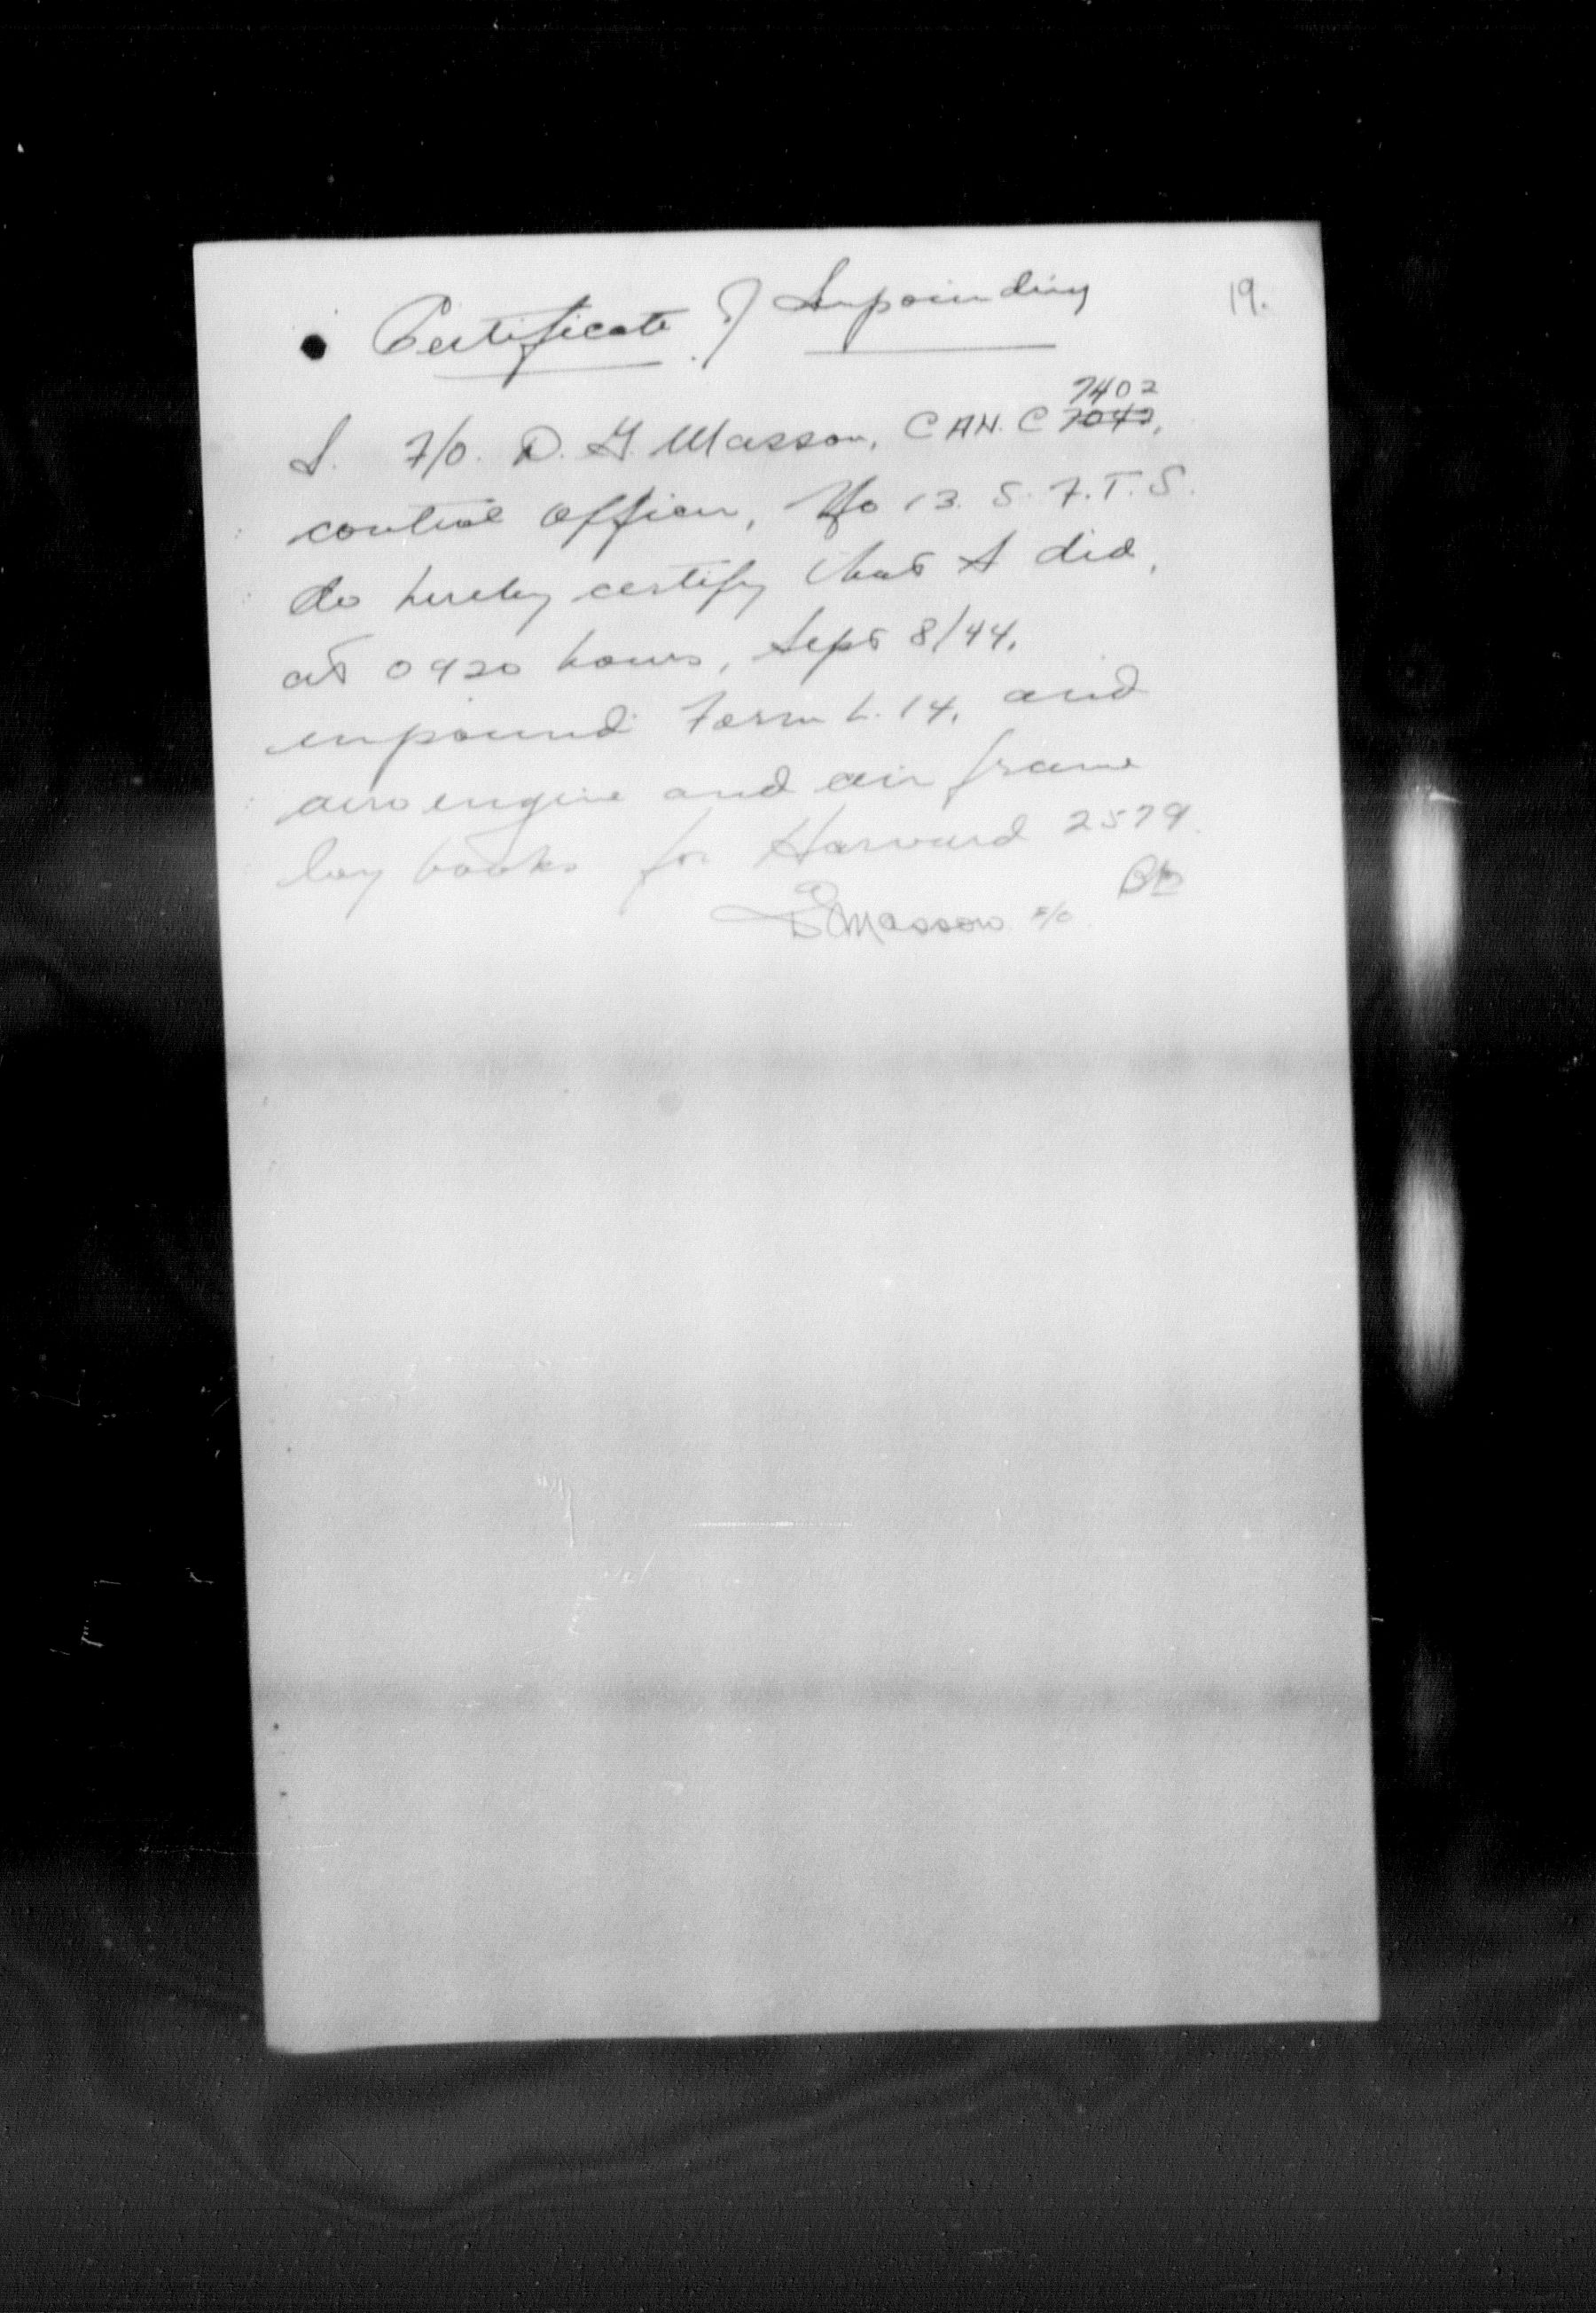 19.
Certificate of Impounding
7402
I. F/O. D. G. Masson, CAN. C 7042,
control Officer, No 13. S. F. T. S.
do hereby certify that I did,
at 0920 hours, Sept 8/44,
impound Form L. 14, and
aero engine and air frame
log books for Harvard 2579.
DGMasson F/O